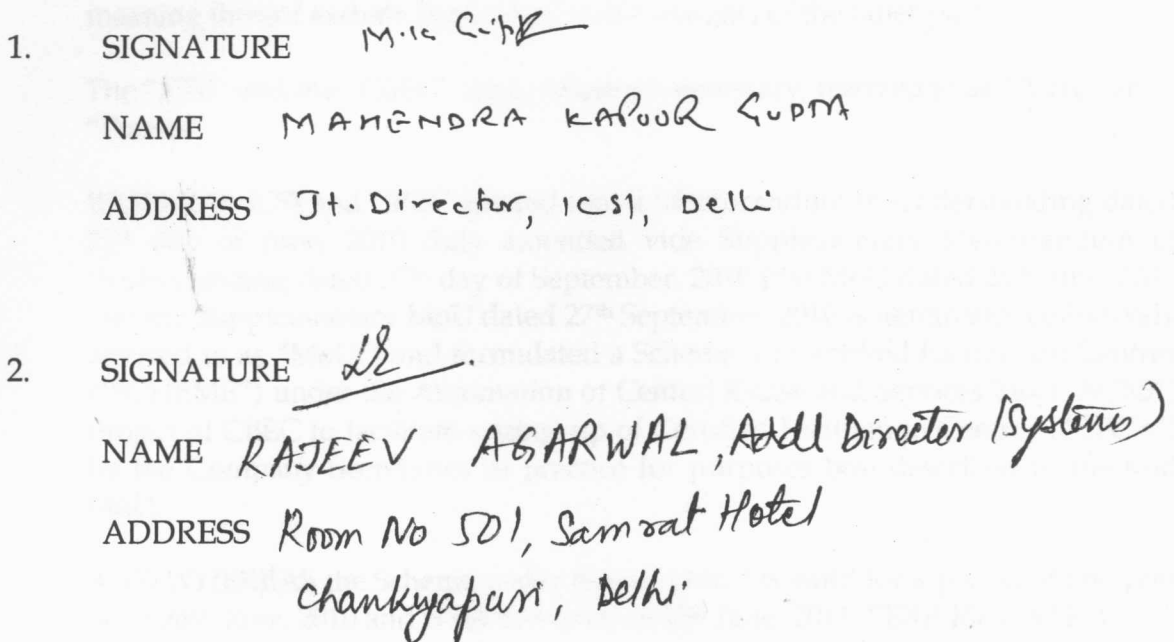 1. SIGNATURE M.K Gupta
NAME MAHENDRA KAPOOR GUPTA
ADDRESS Jt Director, ICSI, Delhi
2. SIGNATURE
NAME RAJEEV AGARWAL, Addl Director (Systems)
ADDRESS Room No 501, Samrat Hotel
Chankyapuri, Delhi